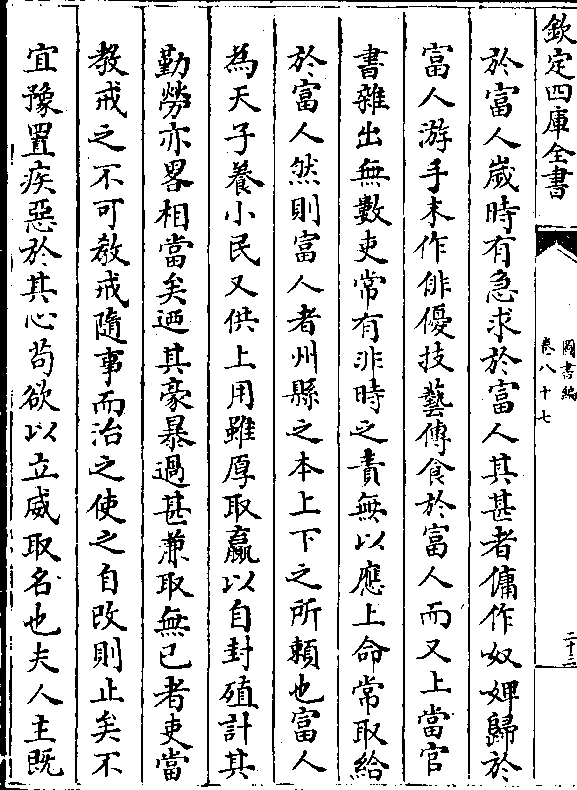 欽定四庫全書
圖書編
卷八十七
二十三
於富人歲時有急求於富人其甚者傭作奴婢歸於
富人游手末作俳優技藝傳食於富人而又上當官
書雜出無數吏常有非時之責無以應上命常取給
於富人然則富人者州縣之本上下之所頼也富人
為天子養小民又供上用雖厚取贏以自封殖計其
勤勞亦畧相當矣迺其豪暴過甚兼取無已者吏當
教戒之不可教戒隨事而治之使之自改則止矣不
宜豫置疾惡於其心茍欲以立威取名也夫人主既